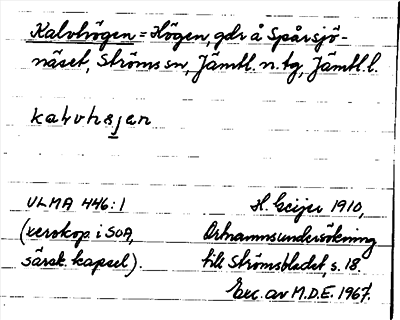 Kalvhögen = Högen, gdr å Spårsjö-
näset, Ströms sn, Jämtl. n. tg, Jämtl. l.
kalvhøjen
ULMA 446:1
H. Geijer 1910,
(xerokop. i SOA,
Ortnamnsundersökning
särsk. kapsel).
till Strömsbladet, s. 18.
Exc. av M.D.E. 1967.